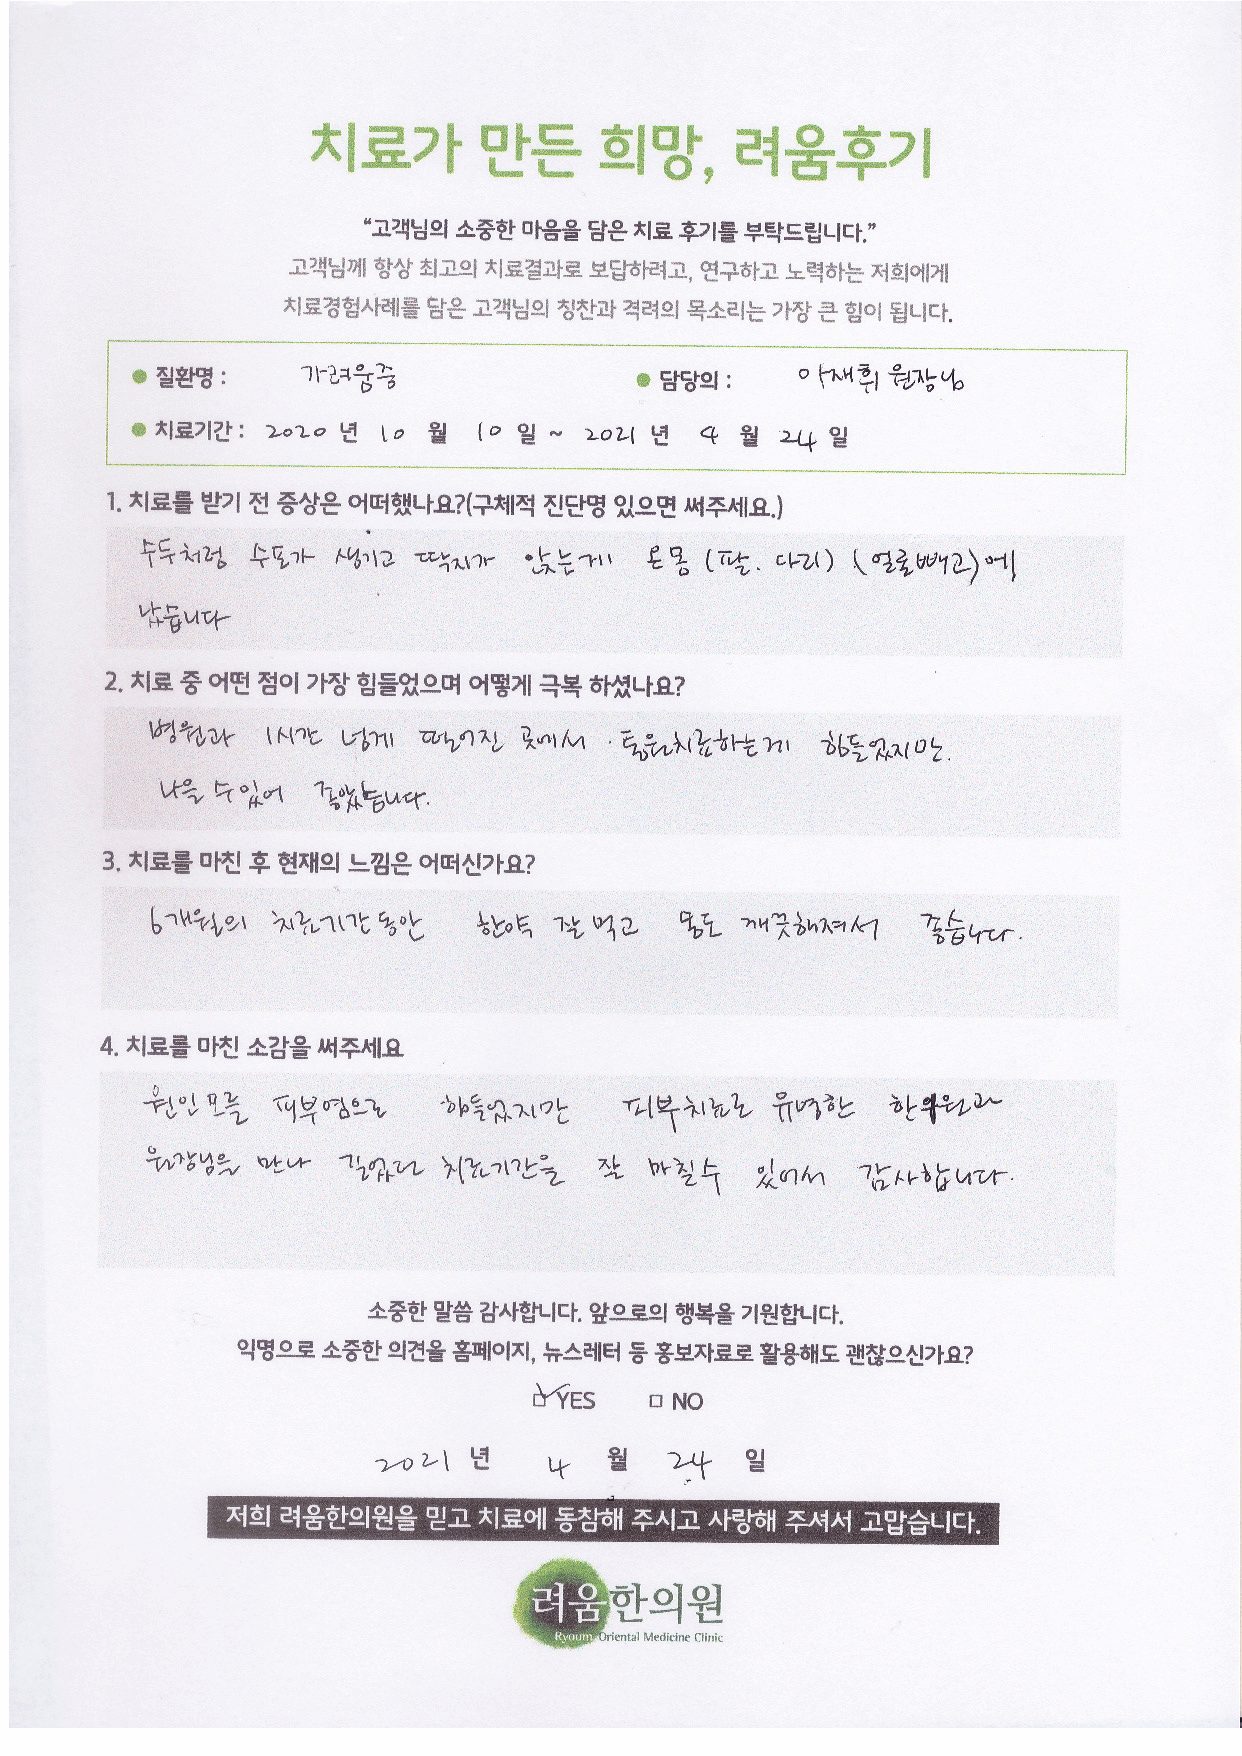 치료가 만든 희망, 려움후기
“고객님의 소중한 마음을 담은 치료 후기를 부탁드립니다.”
고객님께 항상 최고의 치료결과로 보답하려고, 연구하고 노력하는 저희에게
치료경험사례를 담은 고객님의 칭찬과 격려의 목소리는 가장 큰 힘이 됩니다.
질환명 : 가려움증 담당의 : 재휘 원장님
치료기간 : 2020 년 10 월 10 일 ~ 2021 년 4 월 24 일
1. 치료를 받기 전 증상은 어떠했나요?(구체적 진단명 있으면 써주세요.)
수두처럼 수포가 생기고 딱지가 앉는게 온몸 (팔. 다리) (얼굴빼고)에
났습니다
2. 치료 중 어떤 점이 가장 힘들었으며 어떻게 극복 하셨나요?
병원과 1시간 넘게 떨어진 곳에서 통원치료하는게 힘들었지만.
나을 수 있어 좋았습니다.
3. 치료를 마친 후 현재의 느낌은 어떠신가요?
6개월의 치료기간 동안 한약 잘 먹고 몸도 깨끗해져서 좋습니다.
4. 치료를 마친 소감을 써주세요
원인 모를 피부염으로 힘들었지만 피부치료로 유명한 한의원과
원장님을 만나 길었던 치료기간을 잘 마칠수 있어서 감사합니다.
소중한 말씀 감사합니다. 앞으로의 행복을 기원합니다.
익명으로 소중한 의견을 홈페이지, 뉴스레터 등 홍보자료로 활용해도 괜찮으신가요?
YES NO
2021 년 4 월 24 일
저희 려움한의원을 믿고 치료에 동참해 주시고 사랑해 주셔서 고맙습니다.
려움한의원
Ryoum Oriental Medicine Clinic